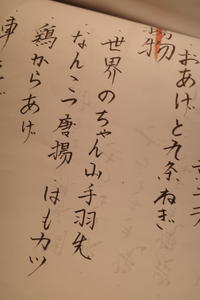 揚物
おあげと九条ねぎ
世界のちゃん山手羽先
なんこつ唐揚 はもカツ
鶏からあげ